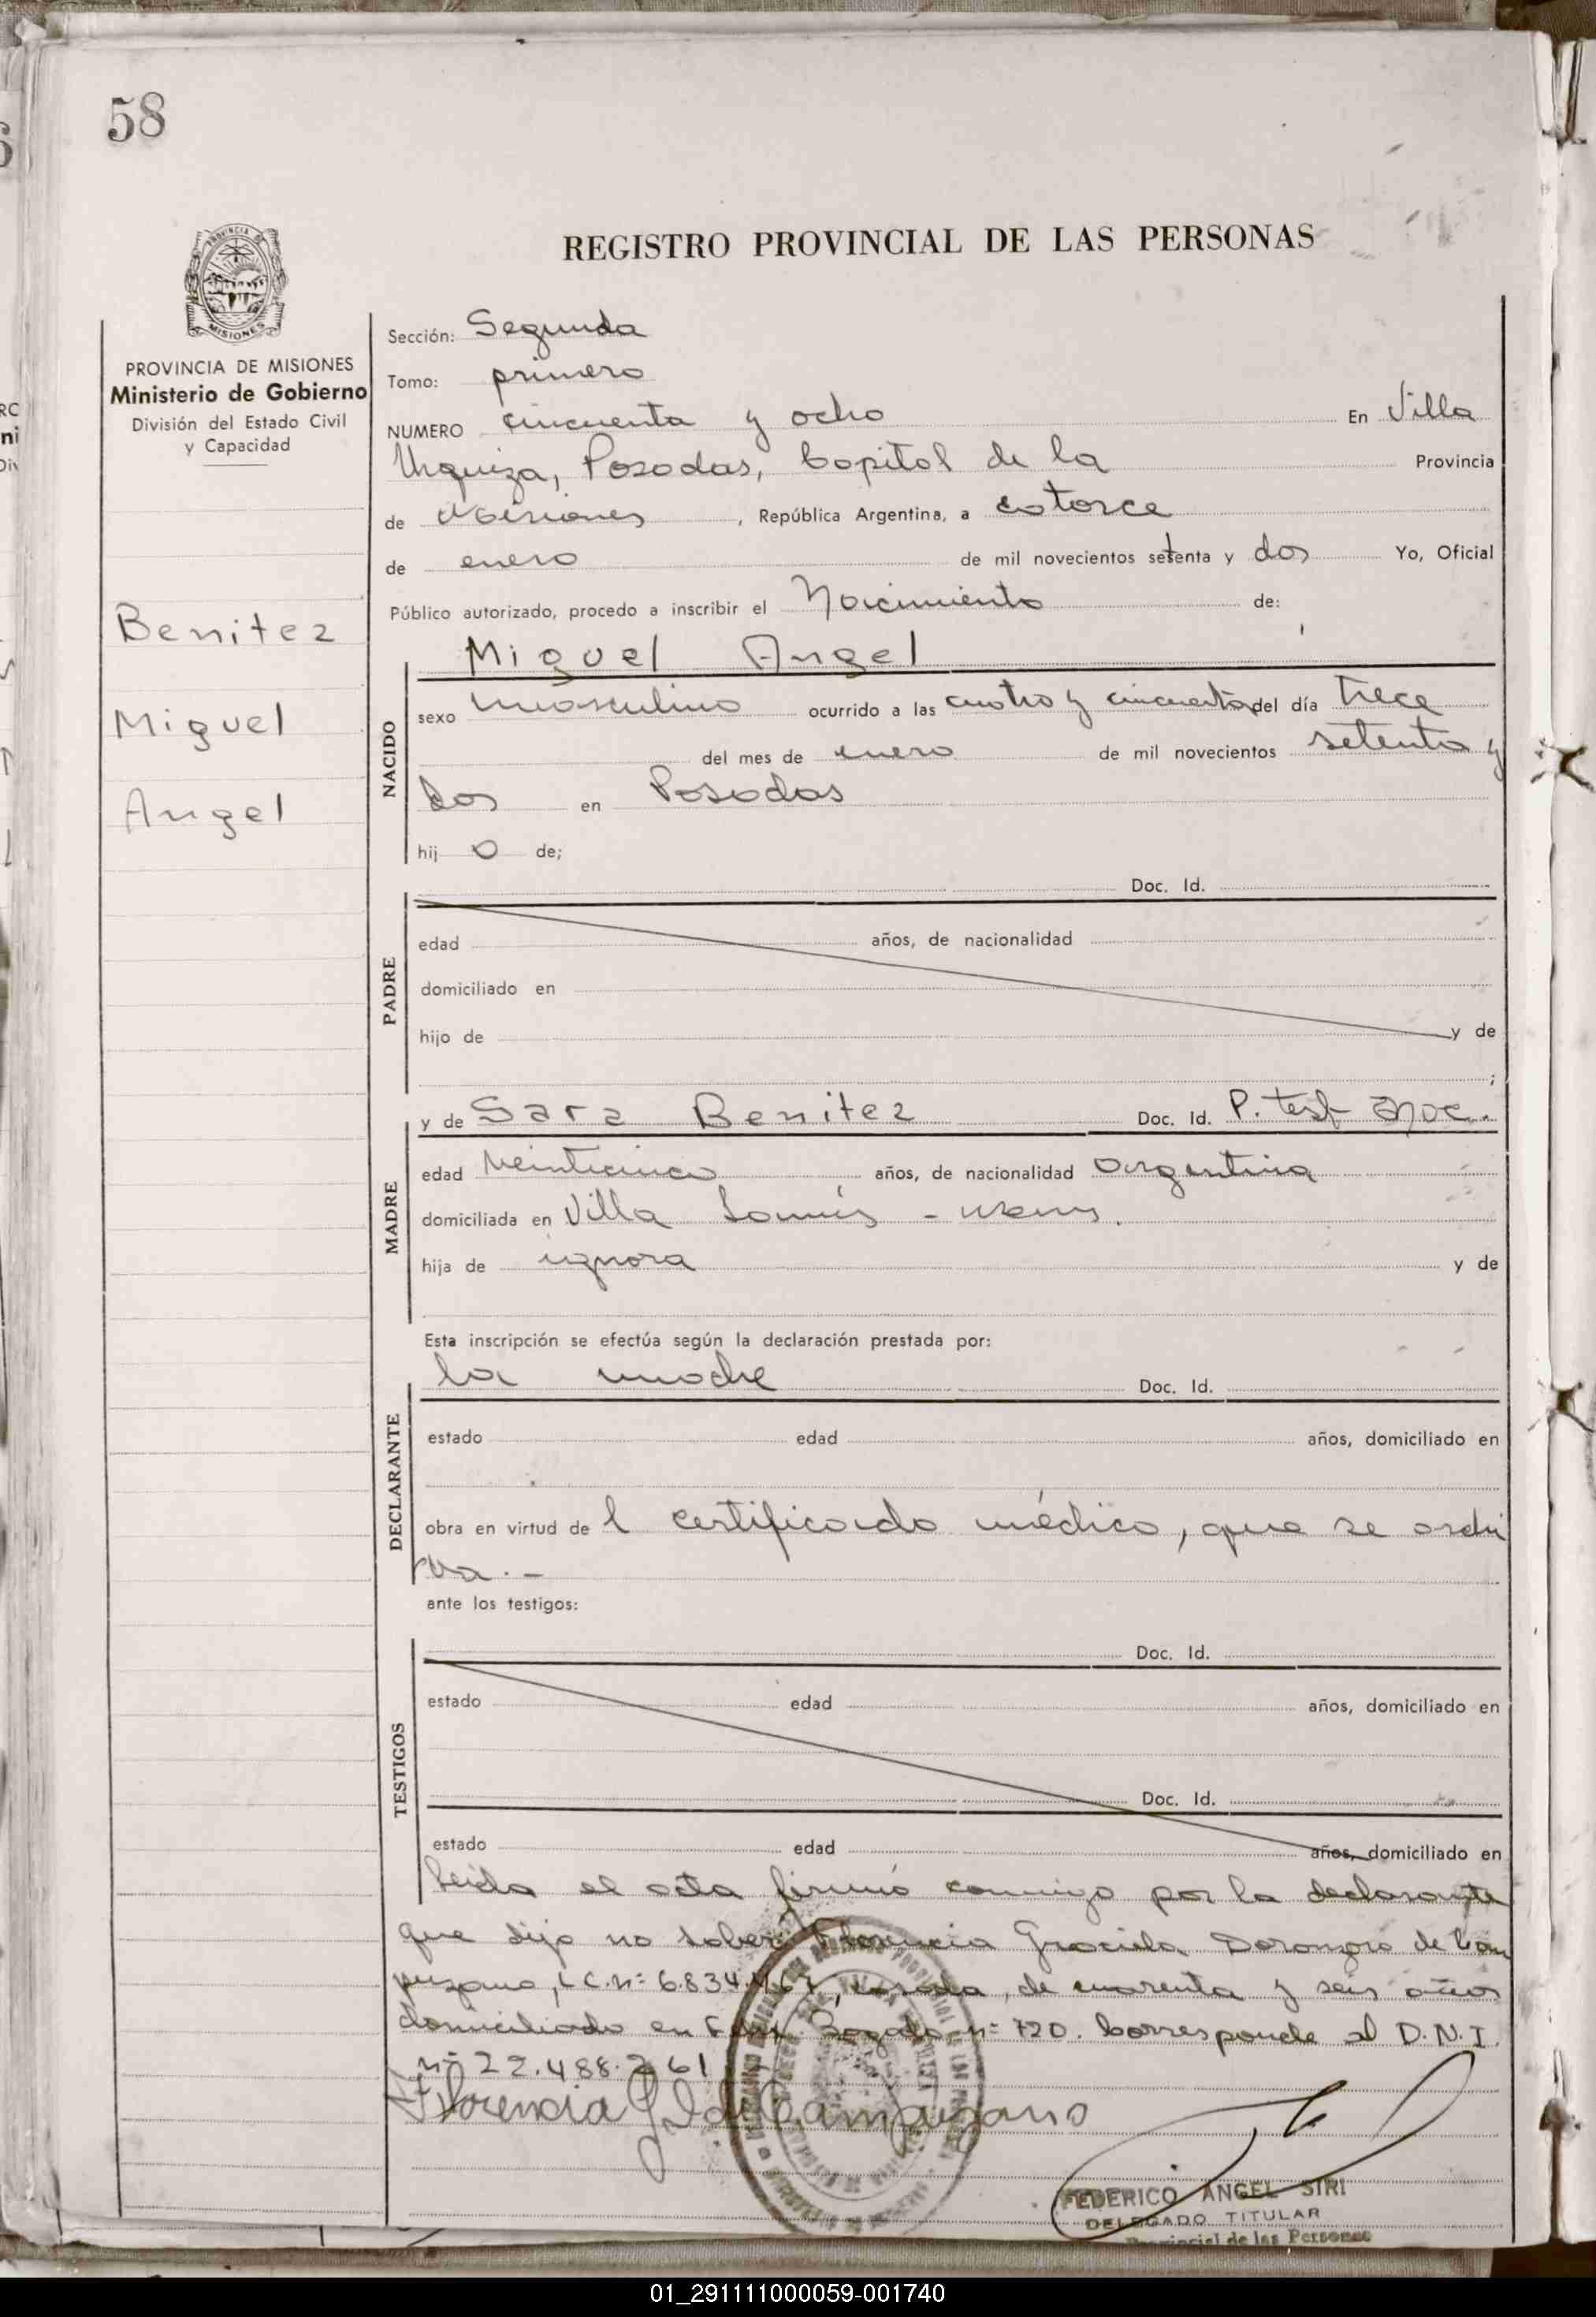 58
REGISTRO PROVINCIAL DE LAS PERSONAS
PROVINCIA DE MISIONES
Ministerio de Gobierno
División del Estado Civil
y Capacidad
Benitez
Miguel
Angel
Sección: Segunda
Tomo: primero
NUMERO cincuenta y ocho En Villa
Urquiza, Posadas, Capital de la Provincia
de Misiones, República Argentina, a catorce
de enero de mil novecientos setenta y dos Yo, Oficial
Público autorizado, procedo a inscribir el Nacimiento de:
Miguel Angel
NACIDO
sexo masculino ocurrido a las cuatro y cincuenta del día trece
del mes de enero de mil novecientos setenta y
dos en Posadas
hij o de;
Doc. Id.
PADRE
edad años, de nacionalidad
domiciliado en
hijo de y de
;
y de Sara Benitez Doc. Id. P. test
MADRE
edad veinticinco años, de nacionalidad argentina
domiciliada en Villa
hija de ignora y de
Esta inscripción se efectúa según la declaración prestada por:
la madre Doc. Id.
DECLARANTE
estado edad años, domiciliado en
obra en virtud de l certificado médico, que se archi
va.-
ante los testigos:
Doc. Id.
TESTIGOS
estado edad años, domiciliado en
Doc. Id.
estado edad años, domiciliado en
Leida el acta firmó conmigo por la declarante
que dijo no saber Florencia Graciela de Cam
puzano, L.C.n= casada, de cuarenta y seis años
domiciliado en Bogado n= 720. Corresponde al D.N.I.
n= 22.488.261
Florencia G. de Campuzano
FEDERICO ANGEL SIRI
DELEGADO TITULAR
Provincial de las Personas
01_291111000059-001740